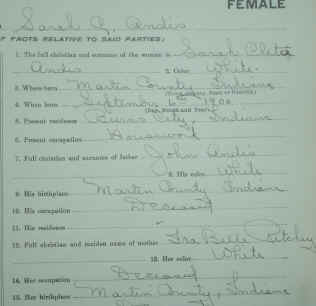 FEMALE
Sarah C. Andis
OF FACTS RELATIVE TO SAID PARTIES:
1. The full christian and surname of the woman is Sarah Cleta
Andis 2. Color White
3. Where born Martin County Indiana
(Town, County, State or Country)
4. When born September 6th 1900
(Day, Month and Year)
5. Present residence Burns City, Indiana
6. Present occupation Housework
7. Full christian and surname of father John Andis
8. His color White
9. His birthplace Martin County Indiana
10. His occupation Deceased
11. His residence
12. Full christian and maiden name of mother Ira Belle Ritchey
13. Her color White
14. Her occupation Deceased
15. Her birthplace Martin County, Indiana